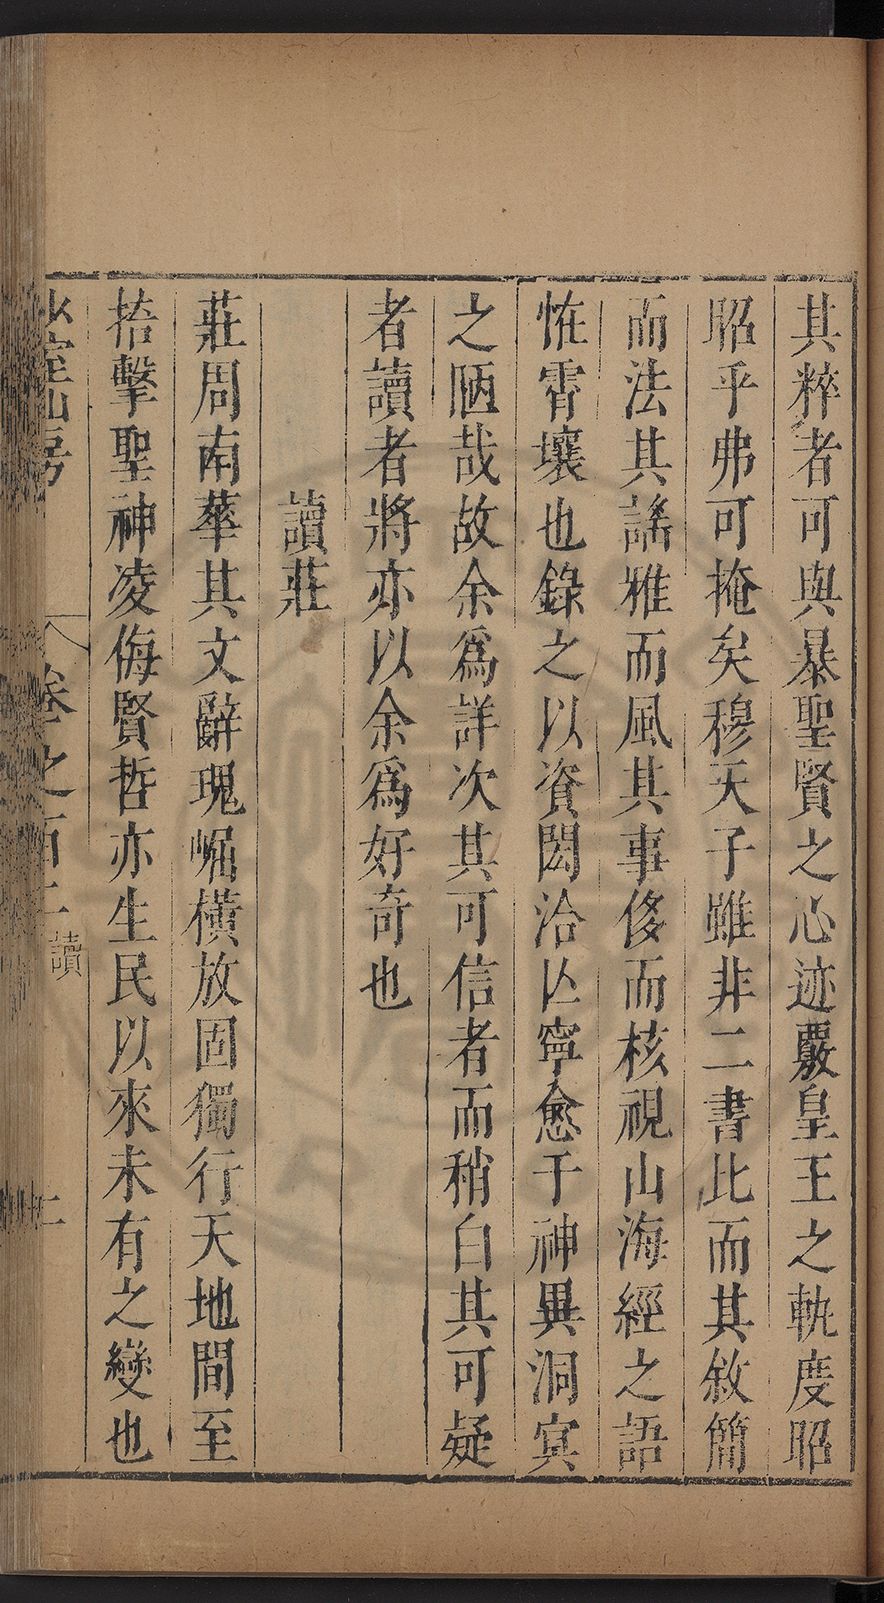 其粹者可與暴聖賢之心迹覈皇王之軌度昭
昭乎弗可掩矣穆天子雖非二書比而其敘簡
而法其謠雅而風其事侈而核視山海經之語
恠霄壤也錄之以資閎洽亾寧愈于神異洞㝠
之陋哉故余爲詳次其可信者而稍白其可疑
者讀者將亦以余爲好奇也
讀莊
莊周南華其文辭瑰崛橫放固獨行天地間至
掊擊聖神凌侮賢哲亦生民以來未有之變也
房 卷之百 讀